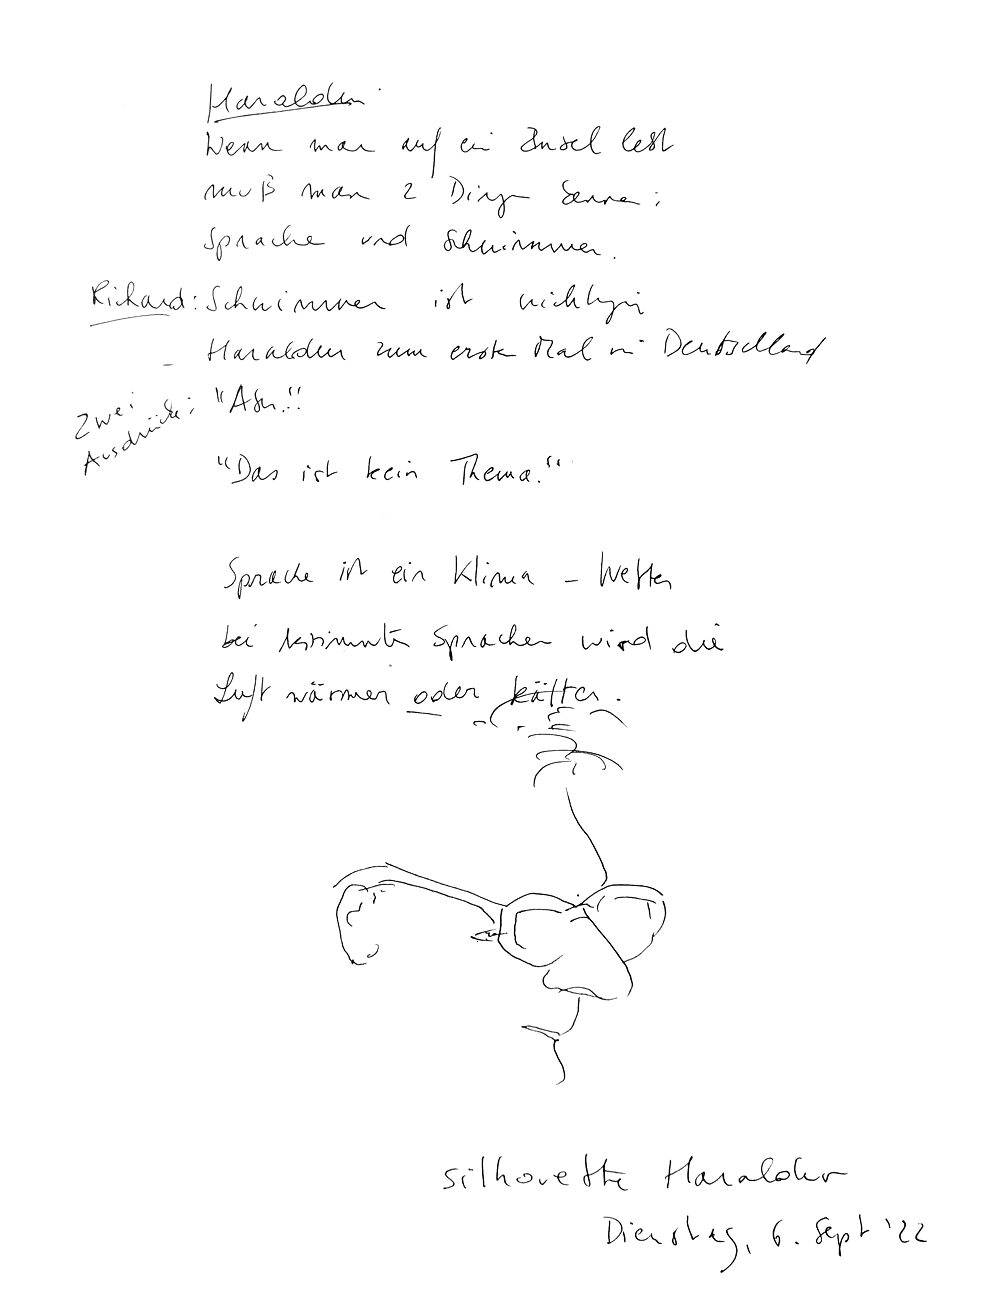 Haraldur
Wenn man auf ein Insel lebt
muß man 2 Dinge lernen:
Sprache und Schwimmen.
Richard: Schwimmen ist wichtiger
- Haraldur zum erste Mal in Deutschland
Zwei Ausdrücke: "Ach.!"
"Das ist kein Thema."
Sprache ist ein Klima - Wetter
bei bestimmte Sprachen wird die
Luft wärmer oder kälter.
silhouette Haraldur
Dienstag, 6. Sept '22